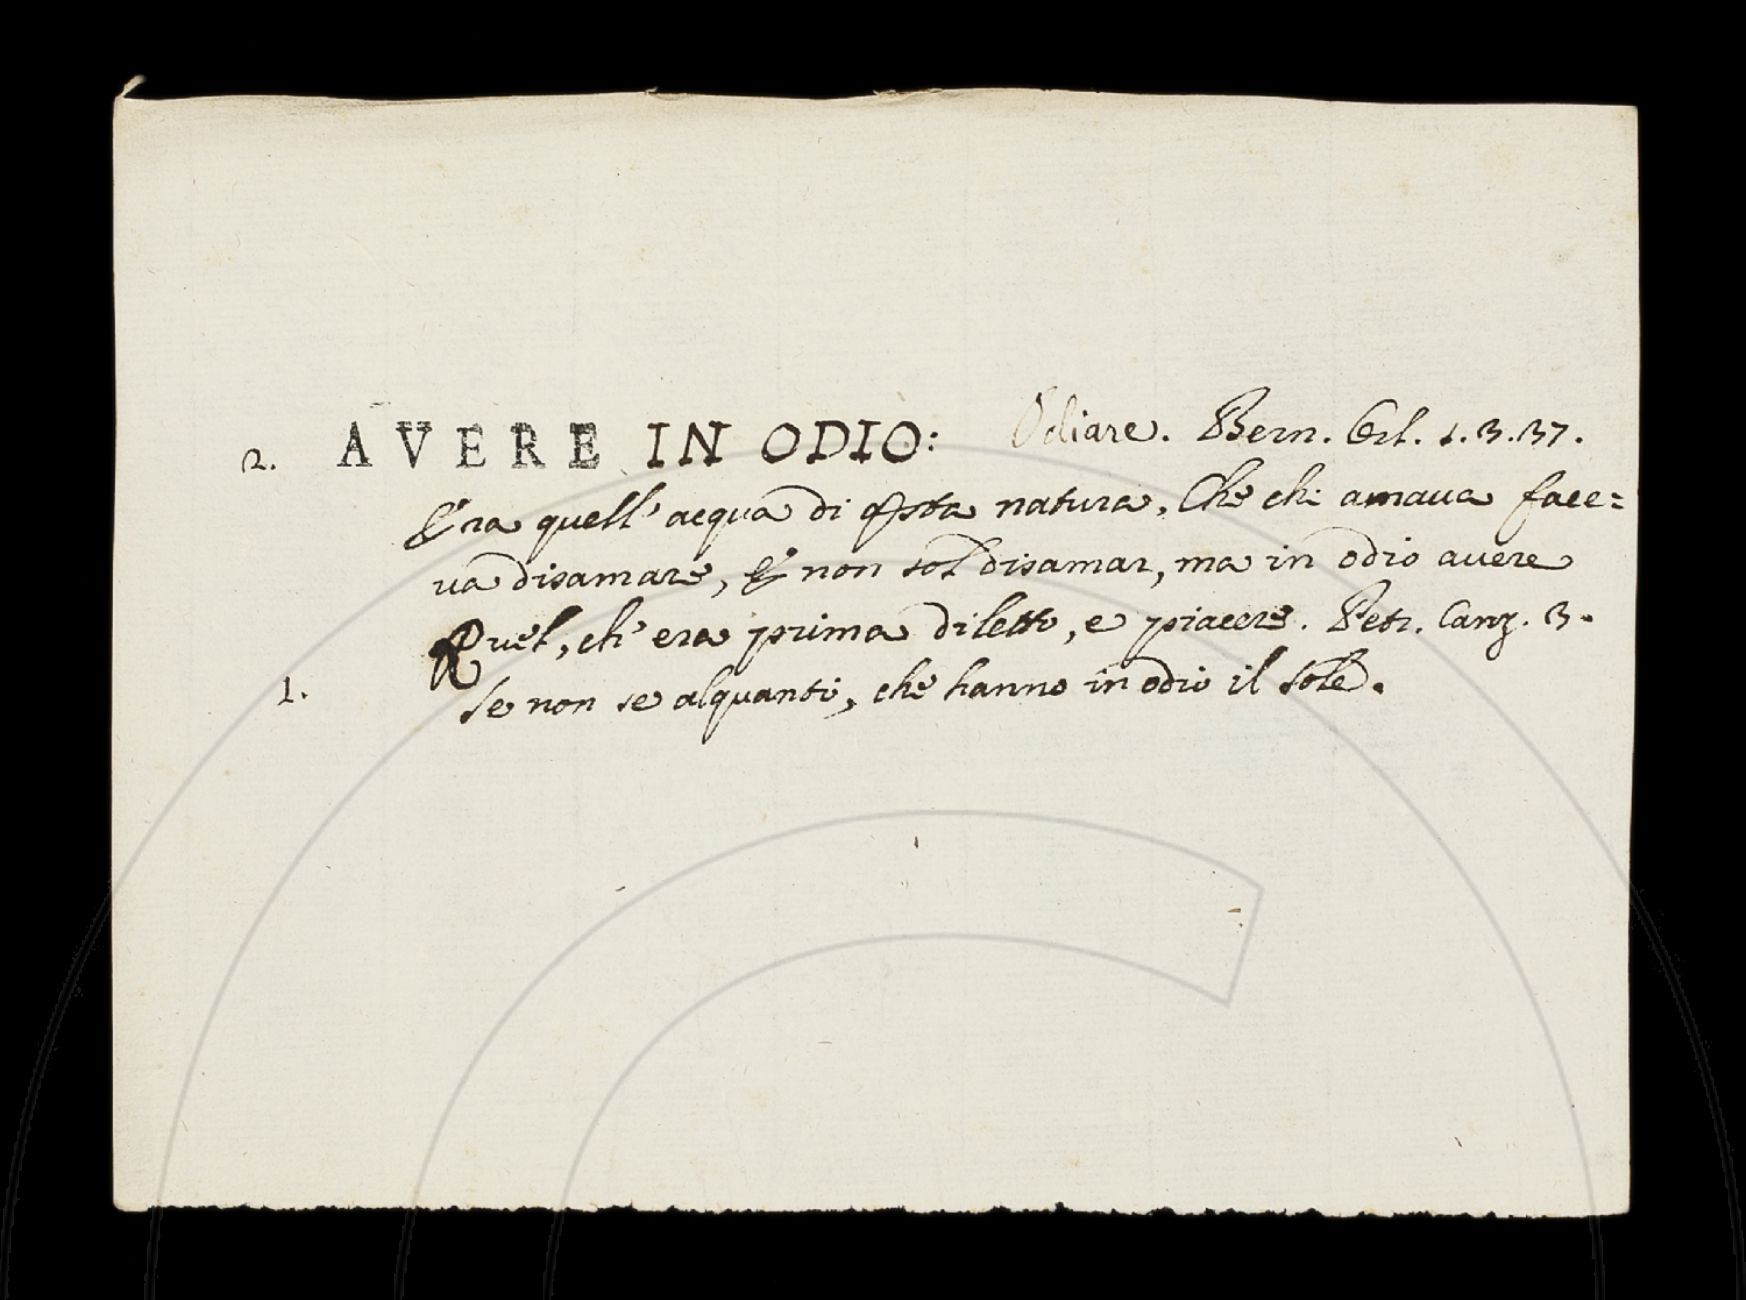 2. AVERE IN ODIO: Odiare. Bern. Orl. 1.3.37.
Era quell' acqua di qsta natura, Che chi amaua face=
ua disamare, E non sol disamar, ma in odio auere
Quel, ch' era prima diletto, e piacere. Petr. Canz. 3.
1. Se non se alquanti, che hanno in odio il sole.